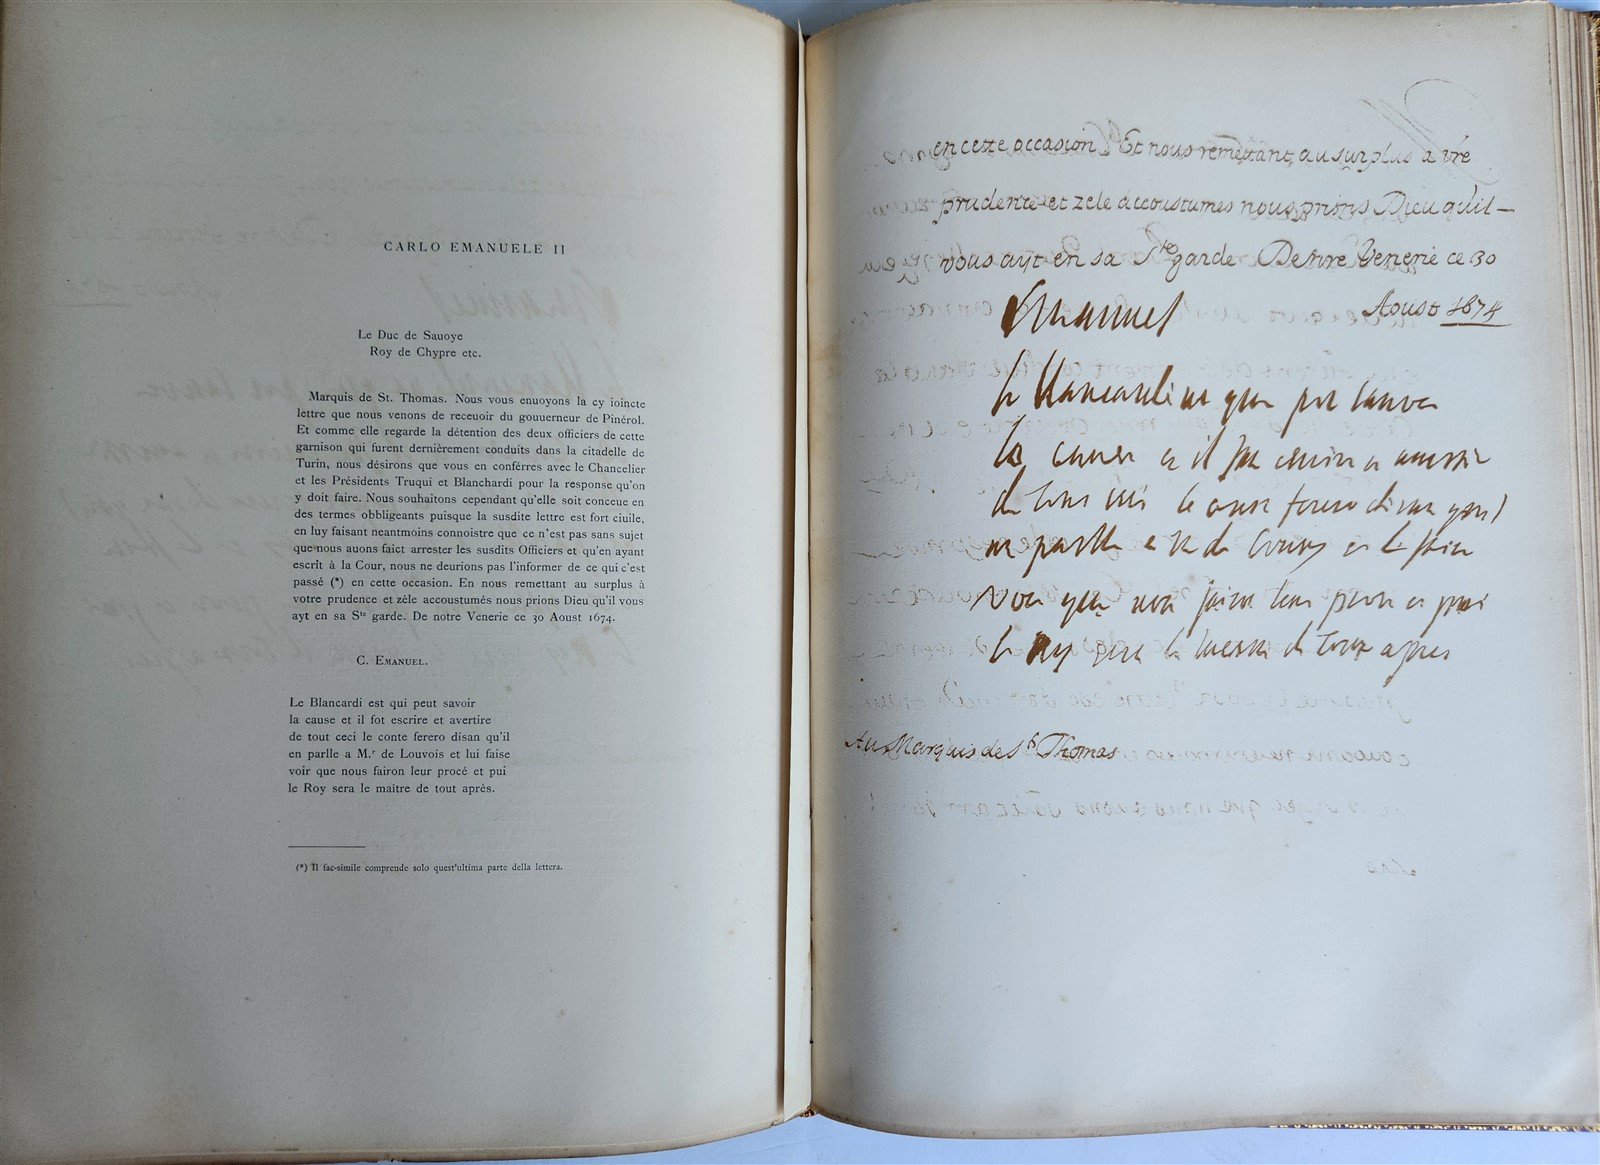 CARLO EMANUELE II
Le Duc de Sauoye
Roy de Chypre etc.
Marquis de St. Thomas. Nous vous enuoyons la cy ioincte
lettre que nous venons de receuoir du gouuerneur de Pinérol.
Et comme elle regarde la détention des deux officiers de cette
garnison qui furent dernièrement conduits dans la citadelle de
Turin, nous désirons que vous en conférres avec le Chancelier
et les Présidents Truqui et Blanchardi pour la response qu'on
y doit faire. Nous souhaitons cependant qu'elle soit conceue en
des termes obbligeants puisque la susdite lettre est fort ciuile,
en luy faisant neantmoins connoistre que ce n'est pas sans sujet
que nous auons faict arrester les susdits Officiers et qu'en ayant
escrît à la Cour, nous ne deurions pas l'informer de ce qui c'est
passé (*) en cette occasion. En nous remettant au surplus à
votre prudence et zèle accoustumés nous prions Dieu qu'il vous
ayt en sa Ste garde. De notre Venerie ce 30 Aoust 1674.
C. EMANUEL.
Le Blancardi est qui peut savoir
la cause et il fot escrire et avertire
de tout ceci le conte ferero disan qu'il
en parlle a M.r de Louvois et lui faise
voir que nous fairon leur procé et pui
le Roy sera le maître de tout après.
(*) Il fac-simile comprende solo quest'ultima parte della lettera.
en cette occasion Et nous remettant au surplus a vre
prudence et zele accoustumes nous prions Dieu qu'il
vous ayt en sa Ste garde De nre Venerie ce 30
Aoust 1674
Emanuel
le Blancardi
la cause et il
de tout
parlle
voir que nous
le Roy de tout apres
Au Marquis de St Thomas